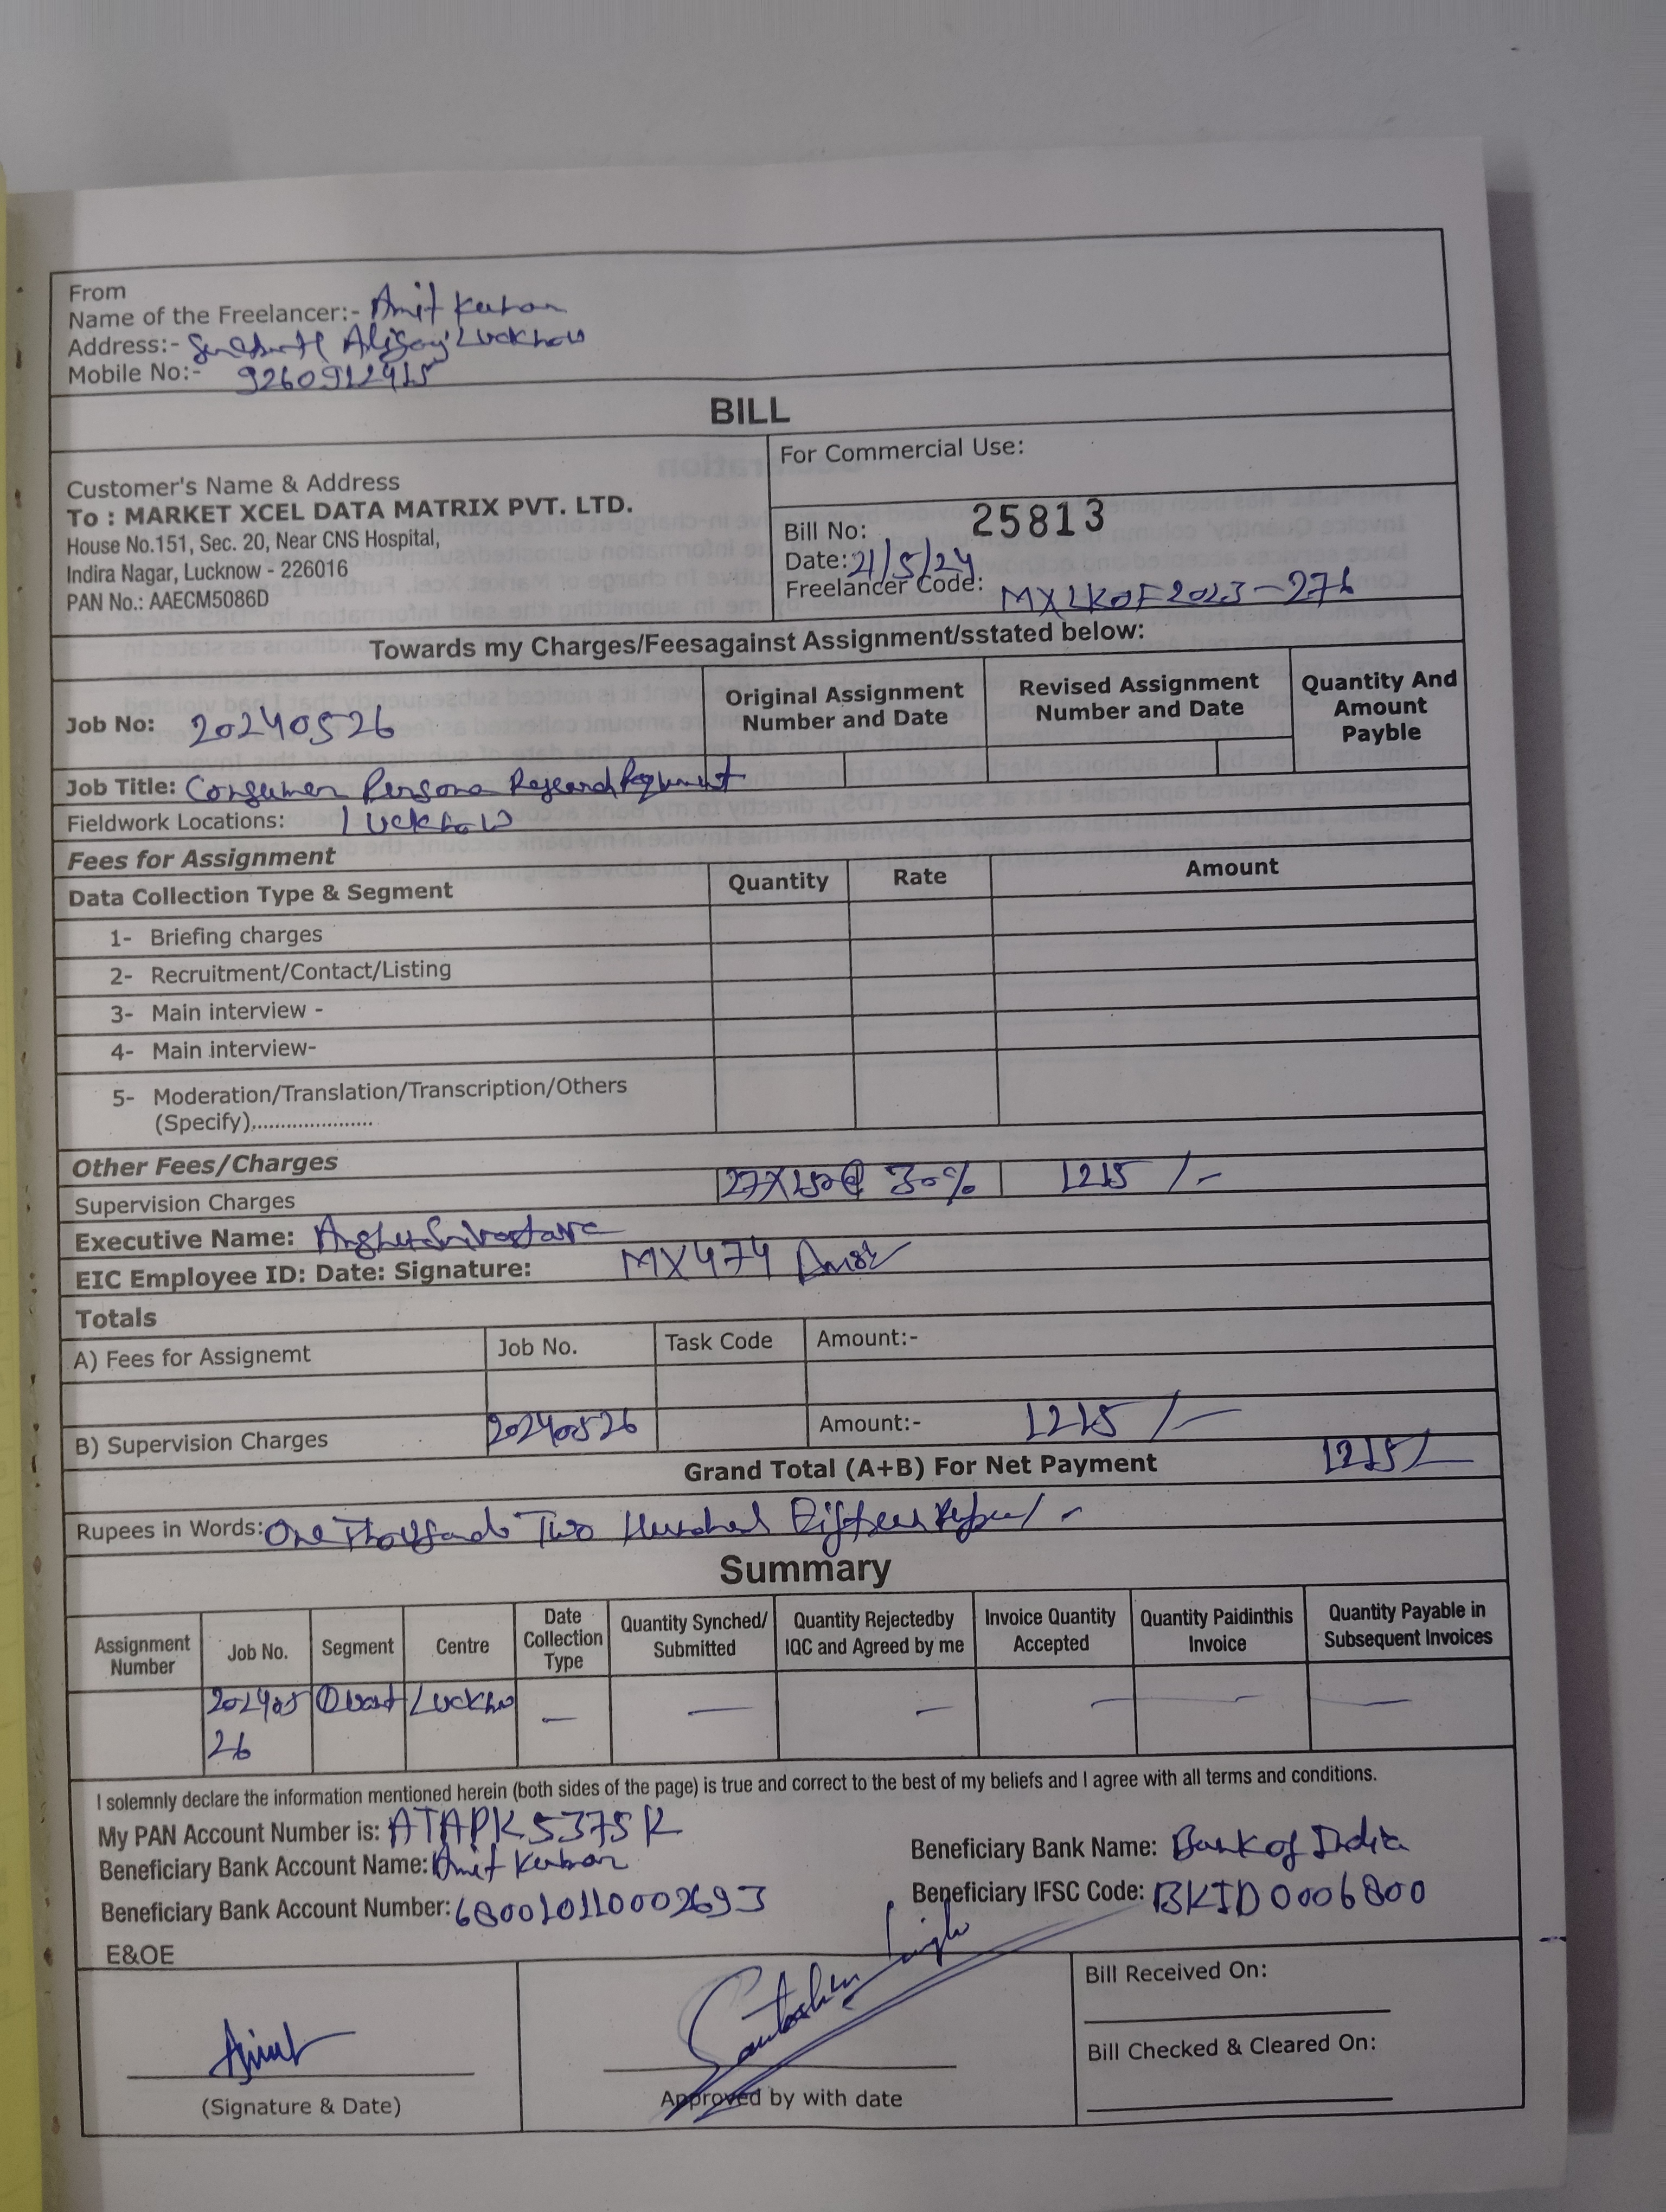 From
Name of the Freelancer:- Amit Kumar
Address:- Aliganj Lucknow
Mobile No:- 9260912415
BILL
Customer's Name & Address
To : MARKET XCEL DATA MATRIX PVT. LTD.
House No.151, Sec. 20, Near CNS Hospital,
Indira Nagar, Lucknow - 226016
PAN No.: AAECM5086D
For Commercial Use:
Bill No: 25813
Date: 21/5/24
Freelancer Code: MXLKOF2023-276
Towards my Charges/Feesagainst Assignment/sstated below:
Job No: 20240526
Original Assignment Number and Date
Revised Assignment Number and Date
Quantity And Amount Payble
Job Title: Consumer Persona
Fieldwork Locations: Lucknow
Fees for Assignment
Data Collection Type & Segment Quantity Rate Amount
1- Briefing charges
2- Recruitment/Contact/Listing
3- Main interview -
4- Main interview-
5- Moderation/Translation/Transcription/Others
(Specify).....................
Other Fees/Charges
Supervision Charges 27X150@ 30% 1215/-
Executive Name: Srivastava
EIC Employee ID: Date: Signature: MX474
Totals
A) Fees for Assignemt Job No. Task Code Amount:-
B) Supervision Charges 20240526 Amount:- 1215/-
Grand Total (A+B) For Net Payment 1215/-
Rupees in Words: One Thousand Two Hundred Fifteen /-
Summary
Assignment Number Job No. Segment Centre Date Collection Type Quantity Synched/ Submitted Quantity Rejectedby IQC and Agreed by me Invoice Quantity Accepted Quantity Paidinthis Invoice Quantity Payable in Subsequent Invoices
20240526 Quant Luckno — — — — — —
I solemnly declare the information mentioned herein (both sides of the page) is true and correct to the best of my beliefs and I agree with all terms and conditions.
My PAN Account Number is: ATAPK5375K
Beneficiary Bank Account Name: Amit Kumar
Beneficiary Bank Account Number: 680010110002693
Beneficiary Bank Name: Bank of India
Beneficiary IFSC Code: BKID0006800
E&OE
Amit
(Signature & Date)
Santosh Singh
Approved by with date
Bill Received On:
Bill Checked & Cleared On: